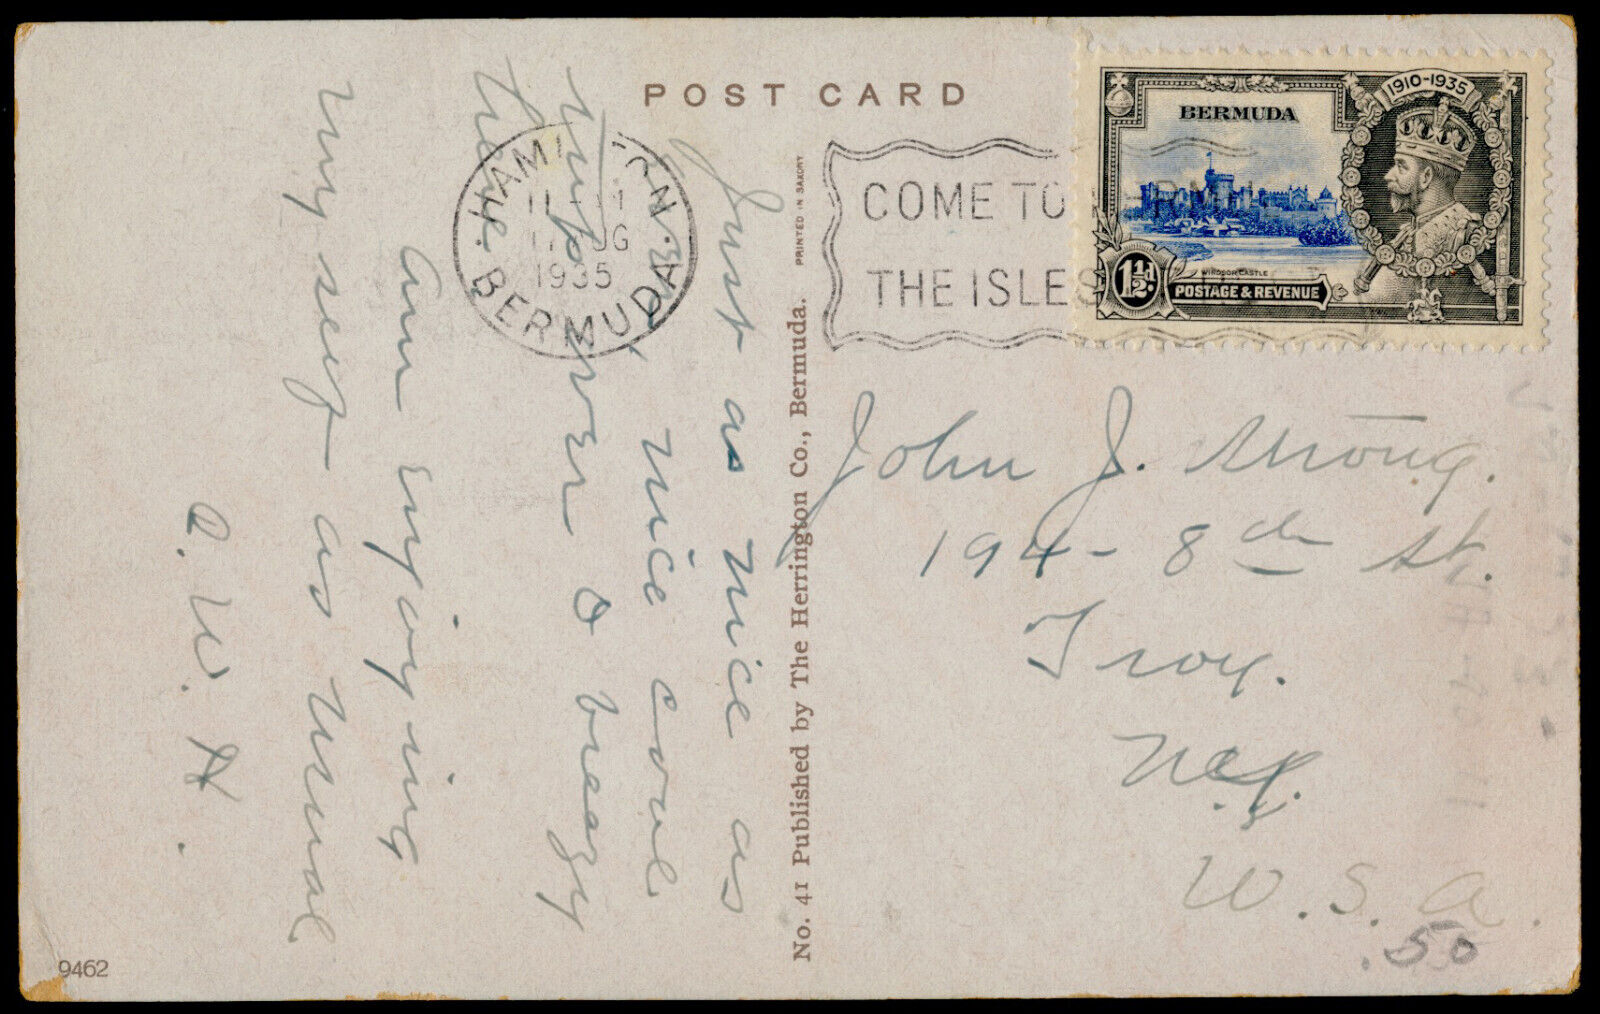 POST CARD
HAMILTON
11 - M
AUG
1935
BERMUDA
COME TO BERM
THE ISLES
1910-1935
BERMUDA
WINDSOR CASTLE
1½d.
POSTAGE & REVENUE
Just as nice as
nice cool
over & breezy
here
am enjoying
myself as usual
A. W. H.
No. 41 Published by The Herrington Co., Bermuda. PRINTED IN SAXONY
John J. Strong.
194 - 8th St.
Troy.
N.Y.
U. S. A.
.50
9462